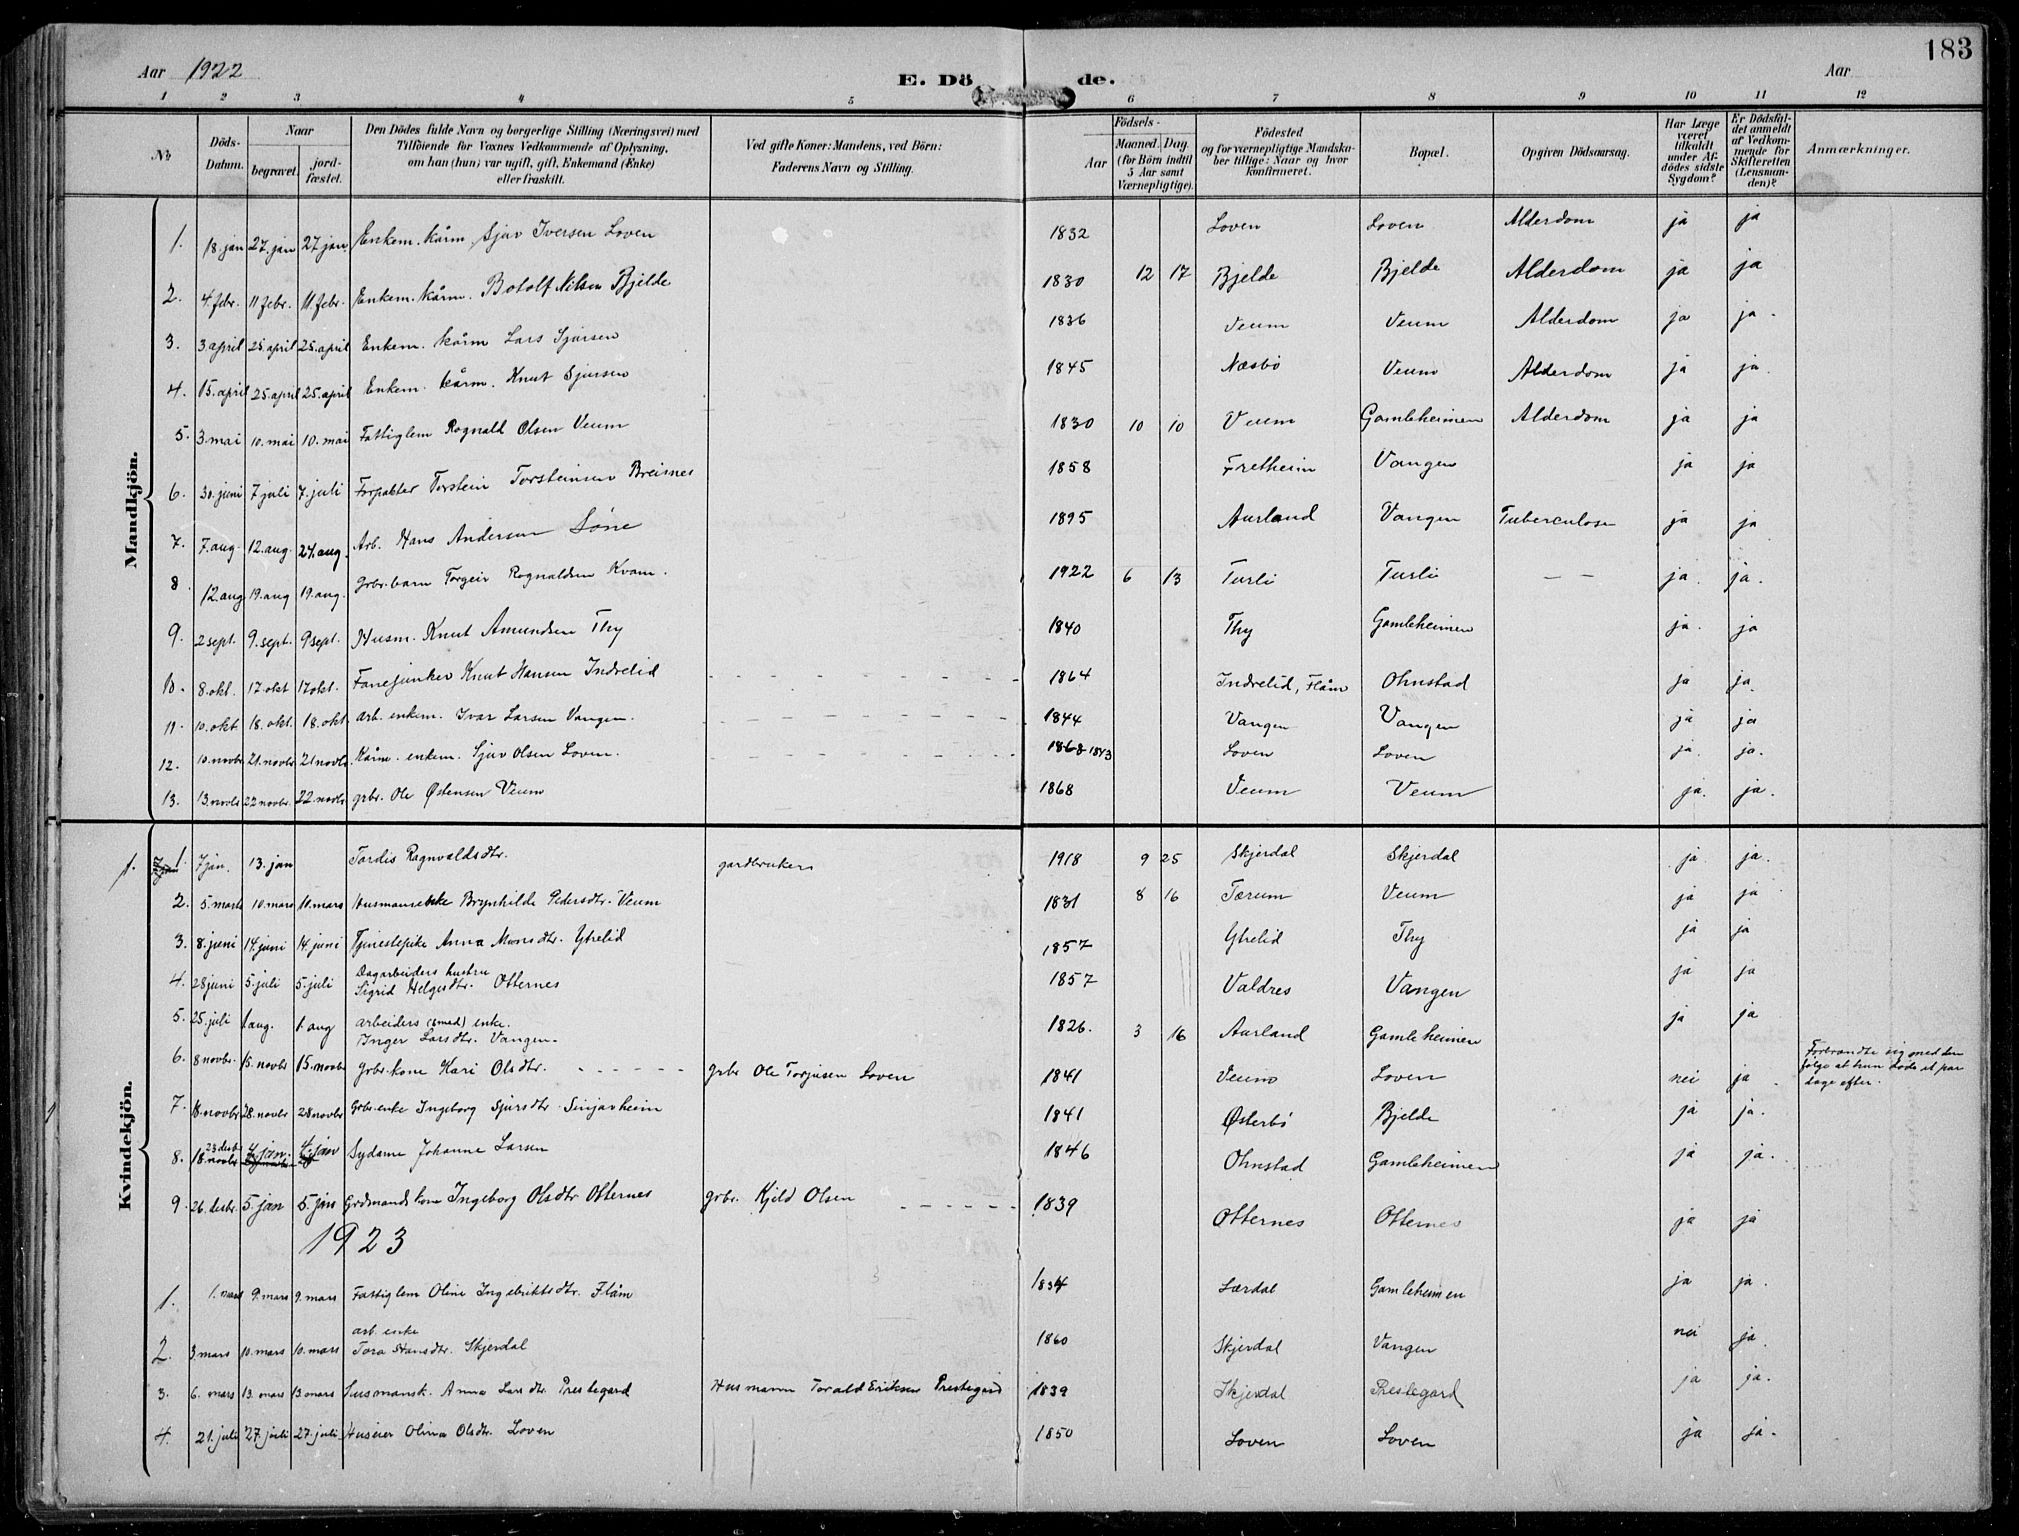 183
Aar 1922 E. Dö de. Aar
1 2 3 4 5 6 7 8 9 10 11 12
No Döds-Datum. Naar begravet. jordfæstet. Den Dödes fulde Navn og borgerlige Stilling (Næringsvei) med Tilföiende for Voxnes Vedkommende af Oplysning, om han (hun) var ugift, gift, Enkemand (Enke) eller fraskilt. Ved gifte Koner: Mandens, ved Börn: Faderens Navn og Stilling. Födsels- Aar Maaned. Dag. (for Börn indtil 5 Aar samt Værnepligtige). Födested og for værnepligtige Mandskaber tillige: Naar og hvor konfirmeret. Bopæl. Opgiven Dödsaarsag. Har Læge været tilkaldt under Afdödes sidste Sygdom? Er Dödsfaldet anmeldt af Vedkommende for Skifteretten (Lensmanden)? Anmærkninger.
Mandkjön.
1. 18. jan 27. jan 27 jan Enkem. kårm. Sjur Iversen Loven 1832 Loven Loven Alderdom ja ja
2. 4. febr. 11 febr. 11 febr. Enkem. kårm. Botolf Nilsen Bjelde 1830 12 17 Bjelde Bjelde Alderdom ja ja
3. 3. april 25. april 25. april Enkem. kårm Lars Sjursen 1836 Veum Veum Alderdom ja ja.
4. 15. april 25. april 25. april Enkem. kårm. Knut Sjursen 1845 Næsbø Veum Alderdom ja ja.
5. 3. mai 10. mai 10. mai Fattiglem Rognald Olsen Veum 1830 10 10 Veum Gamleheimen Alderdom ja ja
6. 30. juni 7 juli 7. juli Forpakter Torstein Torsteinsen Breisnes 1858 Fretheim Vangen ja ja
7. 7. aug. 12. aug. 24. aug. Arb. Hans Andersen 1895 Aurland Vangen Tuberculose ja ja
8. 12. aug 19. aug 19. aug. Grbr. barn Torgeir Rognaldsen Kvam. 1922 6 13 Turli Turli — — ja. ja.
9. 2 sept. 9. sept. 9 sept. Husm. Knut Amundsen Thy 1840 Thy Gamleheimen ja. ja
10. 8. okt. 17. okt 17 okt. Fanejunker Knut Hansen Indrelid 1864 Indrelid, Flåm Ohnstad ja ja
11. 10. okt 18. okt. 18. okt arb. enkem. Ivar Larsen Vangen. 1844 Vangen Vangen ja ja
12. 10. novbr 21. novbr 21 novbr Kårm. enkem. Sjur Olsen Loven. 1868 1843 Loven Loven ja. ja.
13. 13. novbr 22 novbr. 22. novbr. grbr. Ole Østensen Veum 1868 Veum Veum ja. ja.
Kvindekjön.
1. 1. 7 jan. 13. jan Tordis Ragnvaldsdtr. gardbruker 1918 9 25 Skjerdal Skjerdal ja ja.
2. 5. mars 10. mars 10. mars Husmansenke Brynhilde Pedersdtr. Veum 1831 8 16 Tærum Veum ja ja
3. 8. juni 14. juni 14. juni Tjenestepike Anna Monsdtr. Ytrelid 1857 Ytrelid Thy ja ja
4. 28 juni 5. juli 5. juli Dagarbeiders hustru
Sigrid Helgesdtr. Otternes 1857 Valdres Vangen ja ja
5. 25. juli 1 aug. 1. aug arbeiders (smed) enke.
Inger Larsdtr. Vangen. 1826. 3 16 Aurland Gamleheimen ja ja
6. 8 novbr. 15. novbr 15. novbr Grbr. kone Kari Olsdtr. grbr Ole Torjusen Loven 1841 Veum Loven nei ja Forbrandte sig med den
følge at hun døde et par
dage efter.
7. 18. novbr 28. novbr 28 novbr Grbr. enke Ingeborg Sjursdtr. Sinjarheim 1841 Østerbø Bjelde ja ja.
8. 23 desbr 18. novbr 4. jan. 4. jan Sydame Johanne Larsen 1846 Ohnstad Gamleheimen ja ja.
9. 26. desbr. 5. jan 5. jan Grdmands kone Ingeborg Olsdtr Otternes grbr. Kjeld Olsen 1839 Otternes Otternes ja ja
1923
1. 1. mars 9. mars 9. mars Fattiglem Oline Ingebriktsdtr. Flåm 1834 Lærdal Gamleheimen ja ja.
2. 3. mars 10. mars 10. mars arb. enke
Tora Hansdtr. Skjerdal 1860 Skjerdal Vangen nei ja.
3. 6. mars 13. mars 13. mars Husmansk. Anna Larsdtr Prestegard Husmann Torald Eriksen Prestegard 1839 Skjerdal Prestegard ja ja.
4. 21. juli 27. juli 27. juli Huseier Olina Olsdtr. Loven 1850 Loven Loven ja ja.